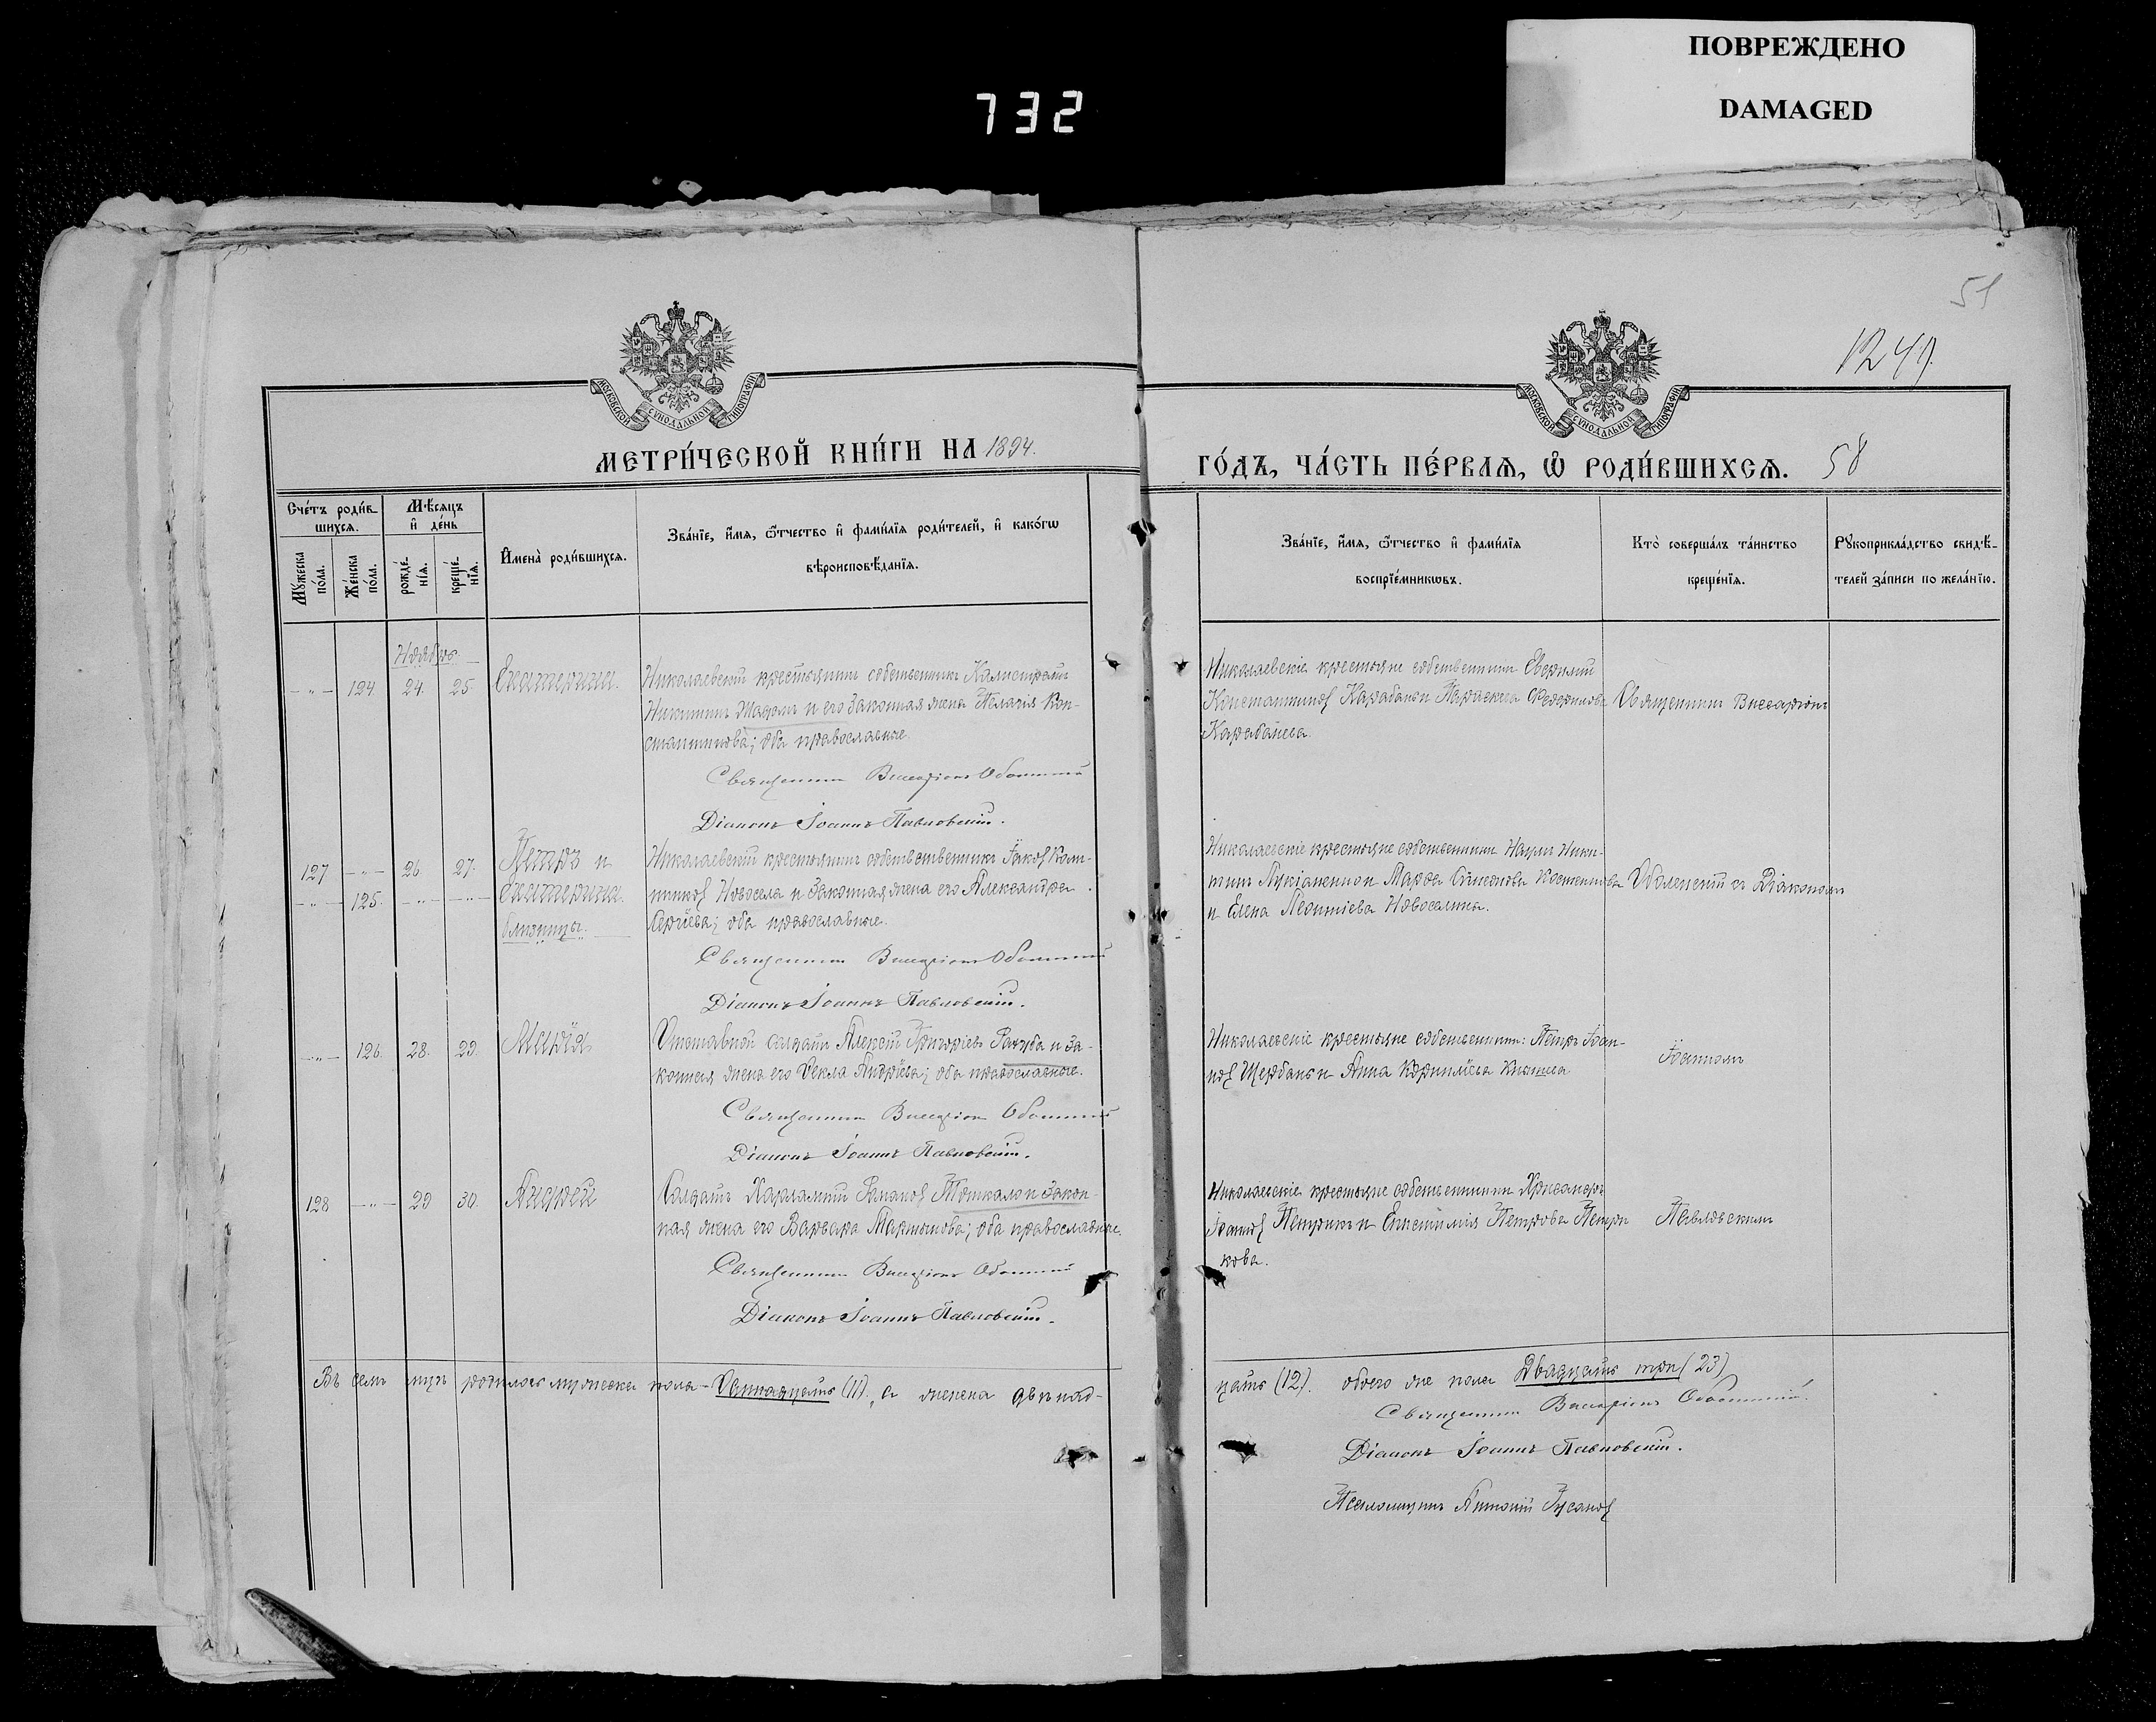 ПОВРЕЖДЕНО
DAMAGED
732
51
1249.
МОСКОВСКОЙ СУНОДАЛЬНОЙ ТИПОГРАФІИ
МОСКОВСКОЙ СУНОДАЛЬНОЙ ТИПОГРАФІИ
МЕТРИ́ЧЕСКОЙ КНИ́ГИ НА 1894.
ГО́ДЪ, ЧА́СТЬ ПЕ́РВАѦ, Ѡ҆ РОДИ́ВШИХСѦ. 58
Сче́тъ роди́в-
шихсѧ.
Мꙋ́жеска
по́ла.
Же́нска
по́ла.
Мѣ́сѧцъ
и҆ де́нь
рожде́-
нїѧ.
креще́-
нїѧ.
И҆мена̀ роди́вшихсѧ.
Зва́нїе, и҆́мѧ, ѻ҆́тчество и҆ фами́лїѧ роди́телей, и҆ како́гѡ
вѣроисповѣ́данїѧ.
Зва́нїе, и҆́мѧ, ѻ҆́тчество и҆ фами́лїѧ
воспрїе́мникѡвъ.
Кто̀ соверша́лъ та́инство
креще́нїѧ.
Рꙋкоприкла́дство свидѣ́-
телей за́писи по жела́нїю.
Ноябрь
- „ - 124. 24. 25. Екатерина.
Николаевскій крестьянинъ собственникъ Калистратъ
Никитинъ и его законная жена Пелагія Кон-
стантинова; оба православные
Священникъ Виссаріонъ Оболенскій
Діаконъ Іоаннъ Павловскій.
Николаевскіе крестьяне собственники
Константиновъ Карабанъ и Параскева
Карабанева.
Священникъ Виссаріонъ
127 - „ - 26. 27. Петръ и
- „ - 125. - „ - - „ - Екатерина
близнецы.
Николаевскій крестьянинъ собственникъ Іаковъ
Новосела и законная жена его Александра
Сергіева; оба православные.
Священникъ Виссаріонъ Оболенскій
Діаконъ Іоаннъ Павловскій.
Николаевскіе крестьяне собственники Наумъ Ники-
тинъ Лукіаненко и Марфа Симеонова
и Елена Леонтіева Новоселина.
Оболенскій съ Діакономъ
- „ - 126. 28. 29. Марія
Отставной солдатъ Алексій Григоріевъ и за-
конная жена его Ѳекла Андреева; оба православные.
Священникъ Виссаріонъ Оболенскій
Діаконъ Іоаннъ Павловскій.
Николаевскіе крестьяне собственники: Петръ Іоан-
новъ Щербань и Анна Корнилиева
Іоанномъ
128 - „ - 29 30. Андрей
Солдатъ Харлампій Тошкало и закон-
ная жена его Варвара Мартынова; оба православные.
Священникъ Виссаріонъ Оболенскій
Діаконъ Іоаннъ Павловскій.
Николаевскіе крестьяне собственники Хрисанфъ
Іоанновъ Петрикъ и Епистимія Петрова Петри
кова.
Павловскимъ
Въ семъ мцѣ родилось мужеска пола - Одинадцать (11), а женска двѣнад-
цать (12). обоего же пола Двадцать три (23)
Священникъ Виссаріонъ Оболенскій.
Діаконъ Іоаннъ Павловскій.
Псаломщикъ Антоній Гусаковъ